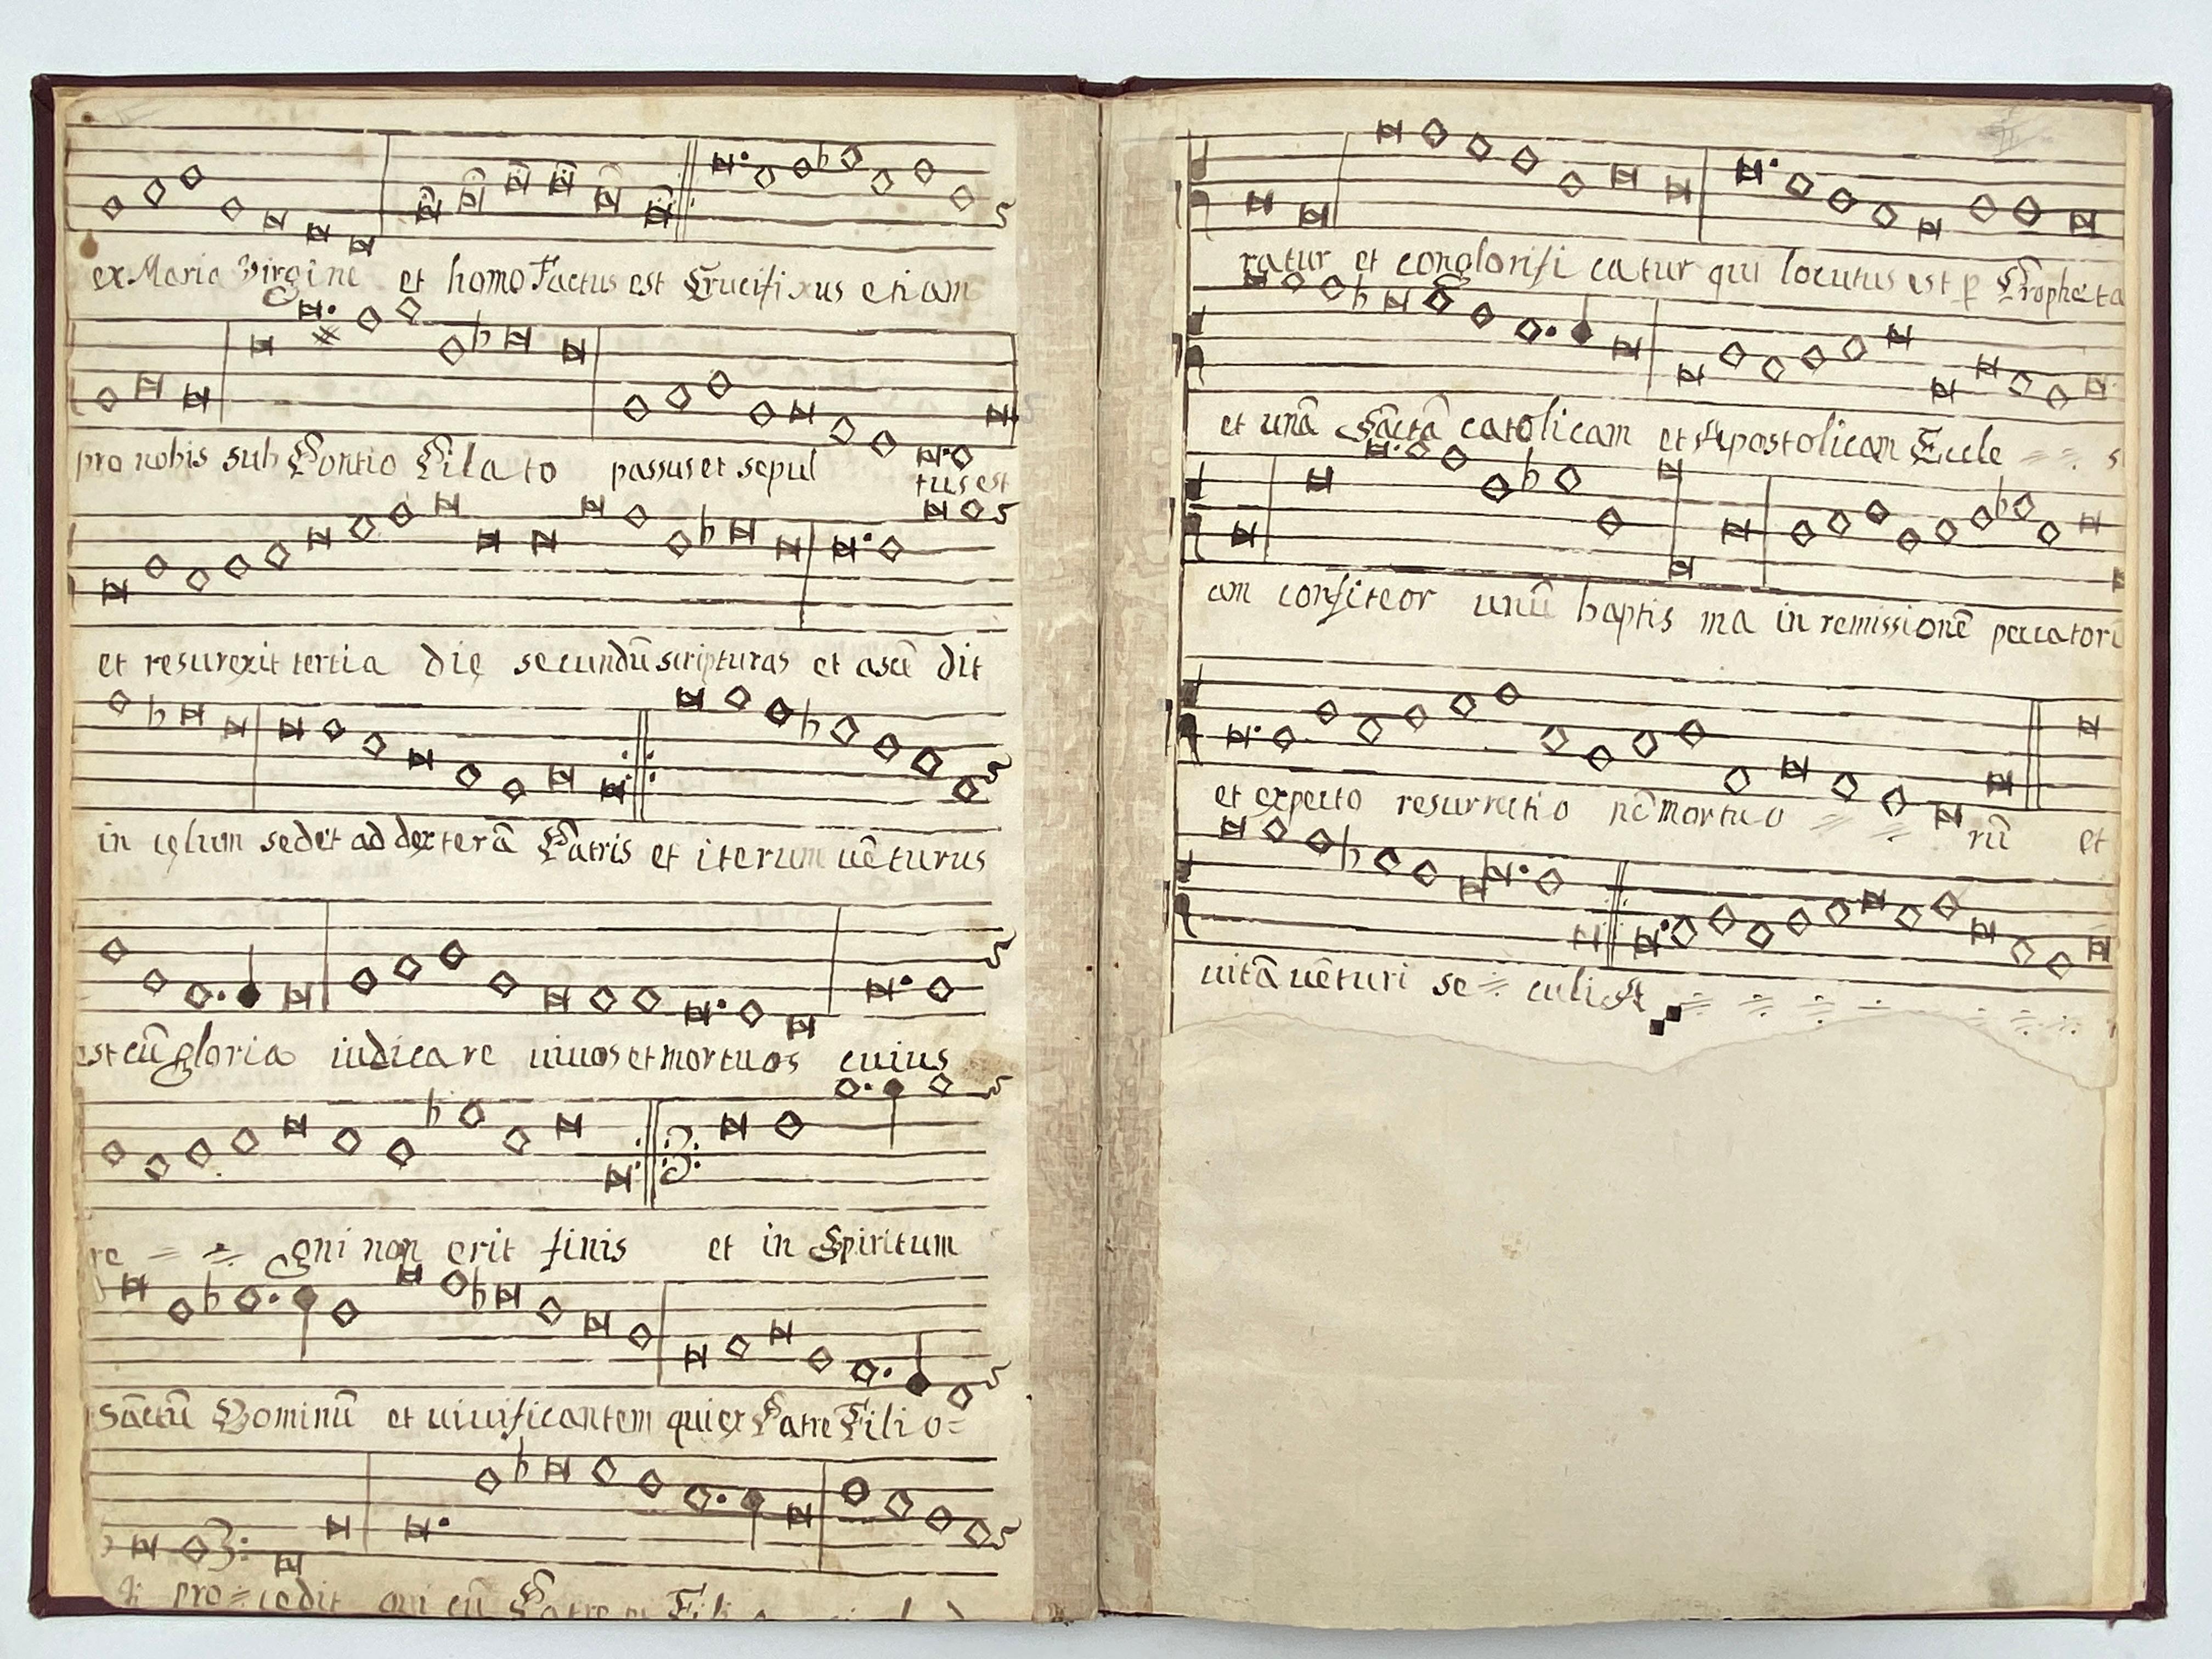 ex Maria Virgine et homo Factus est Crucifixus etiam
pro nobis sub Pontio Pilato passus et sepul
tus est
et resurexit tertia die secundũ scripturas et ascẽ dit
in cęlum sedet ad dexterã Patris et iterum uẽturus
est cũ gloria iudicare uiuos et mortuos cuius
re gni non erit finis et in Spiritum
Sãctũ Dominũ et uiuificantem qui ex Patre Filio=
q; pro=cedit qui cũ Patre
ratur et conglorifi catur qui locutus est p Propheta
et unã Sãctã catolicam et Apostolicam Eccle
am confiteor unũ baptis ma in remissionẽ peccatorũ
et expecto resurrectio nẽ mortuo rũ et
uitã uẽturi se culi